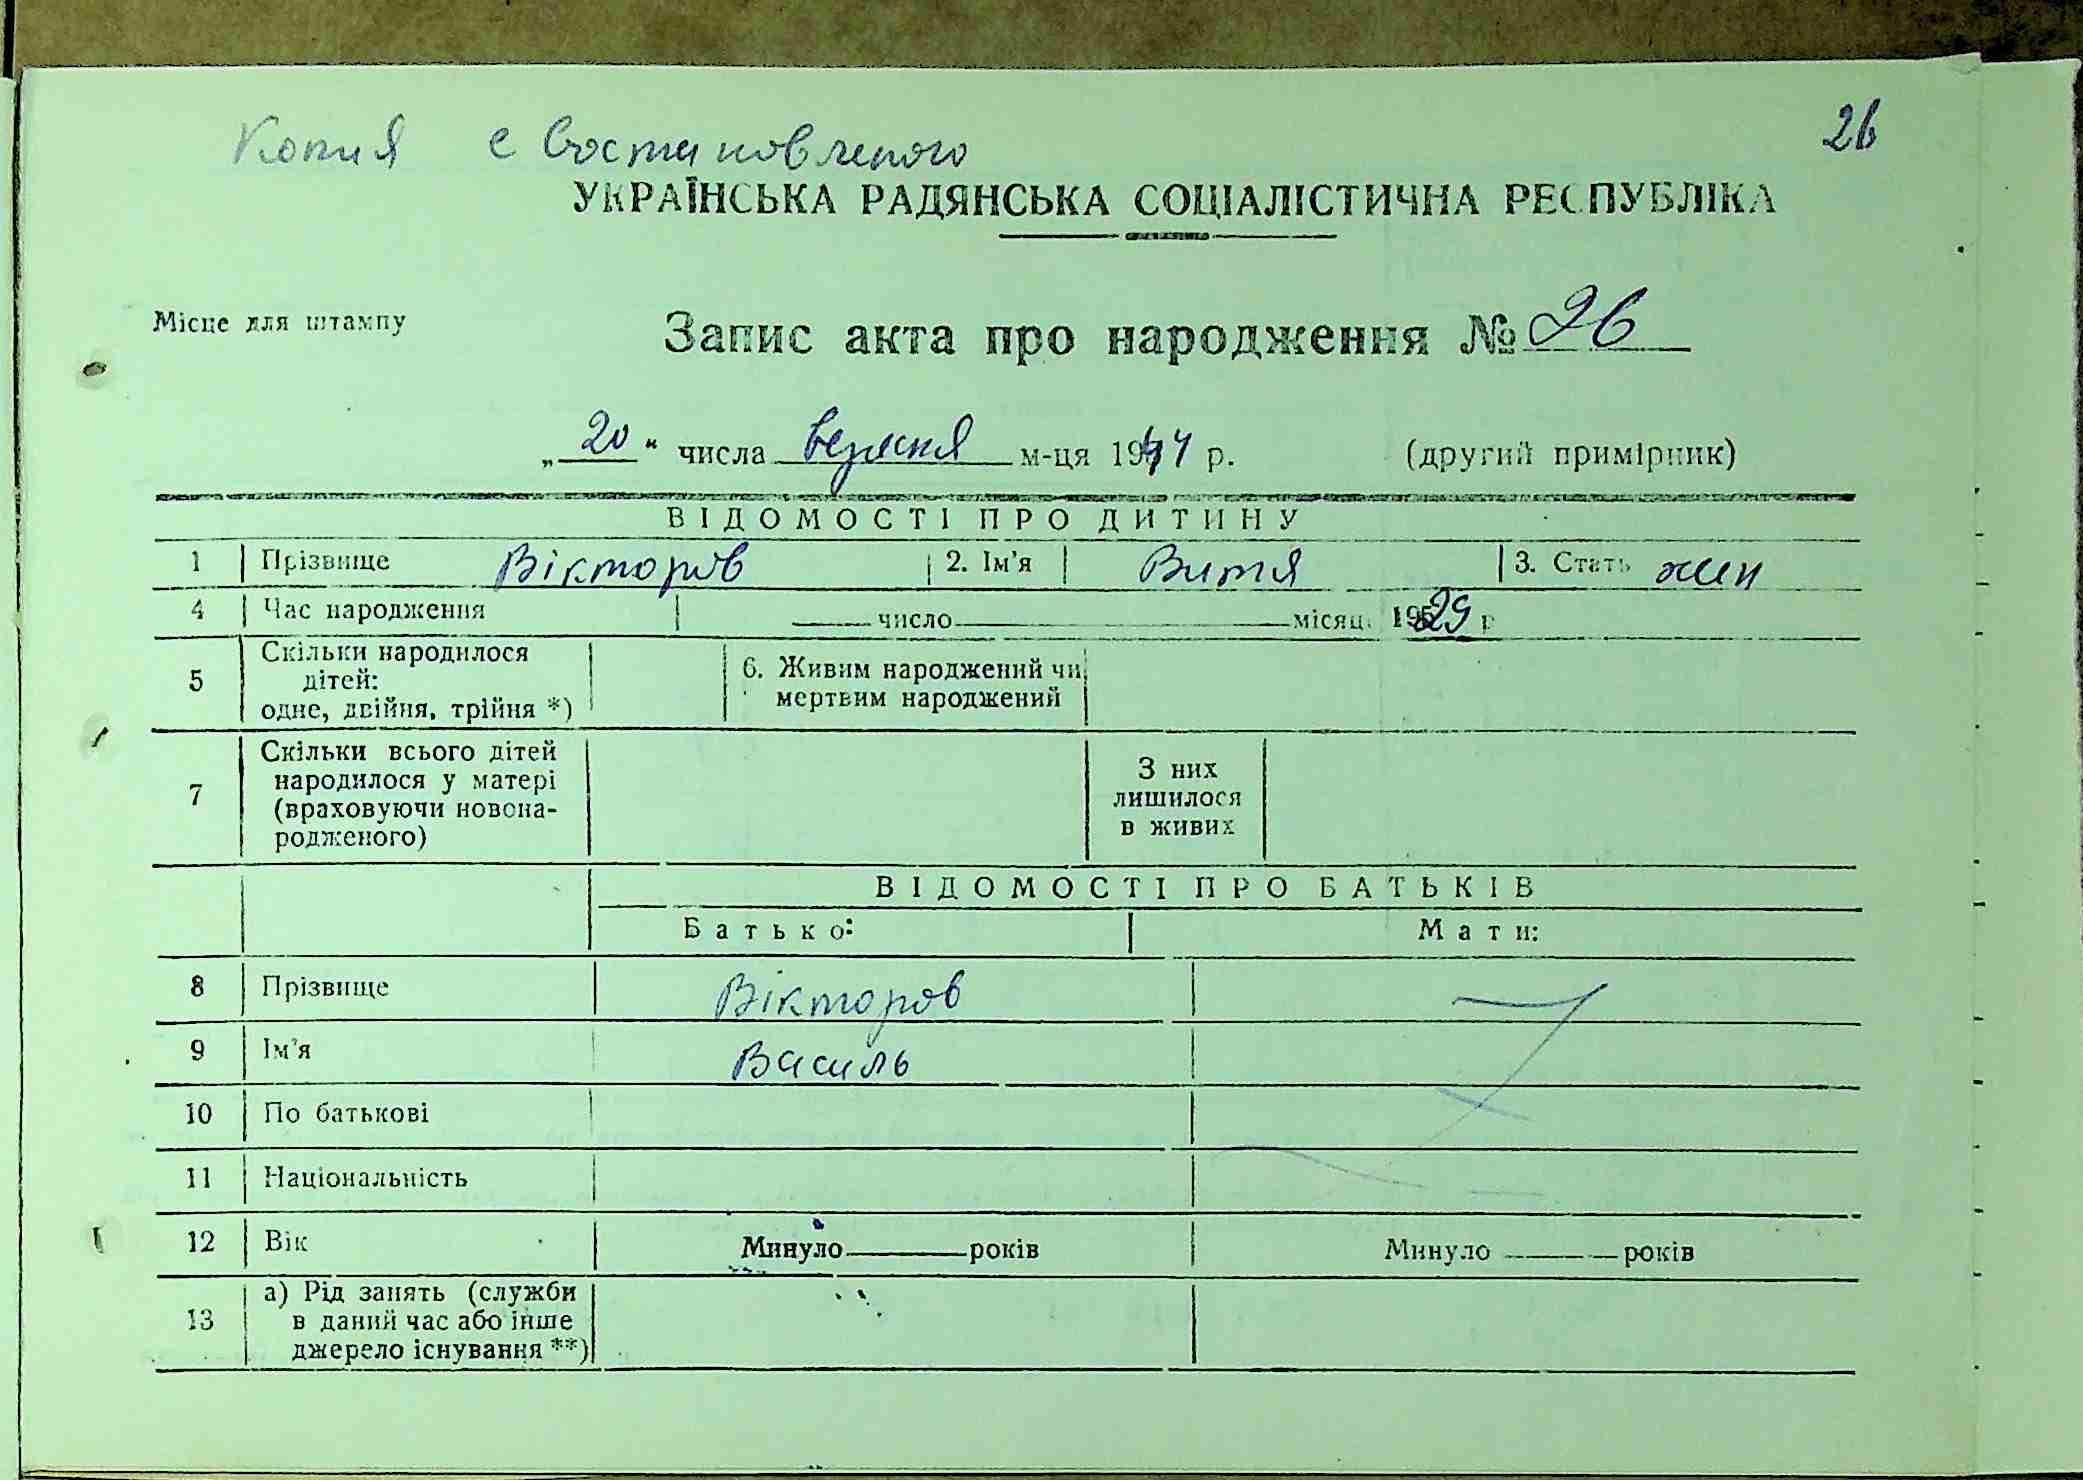 Копия с востановленого
26
УКРАЇНСЬКА РАДЯНСЬКА СОЦІАЛІСТИЧНА РЕСПУБЛІКА
Місце для штампу
Запис акта про народження № 26
„20" числа вересня м-ця 1944 р. (другий примірник)
ВІДОМОСТІ ПРО ДИТИНУ
1 Прізвище Вікторов 2. Ім'я Витя 3. Стать жин
4 Час народження число місяць 1929 р
5 Скільки народилося дітей: одне, двійня, трійня *) 6. Живим народжений чи мертвим народжений
7 Скільки всього дітей народилося у матері (враховуючи новона-родженого) З них лишилося в живих
ВІДОМОСТІ ПРО БАТЬКІВ
Батько: Мати:
8 Прізвище Вікторов
9 Ім'я Василь
10 По батькові
11 Національність
12 Вік Минуло років Минуло років
13 а) Рід занять (служби в даний час або інше джерело існування **)